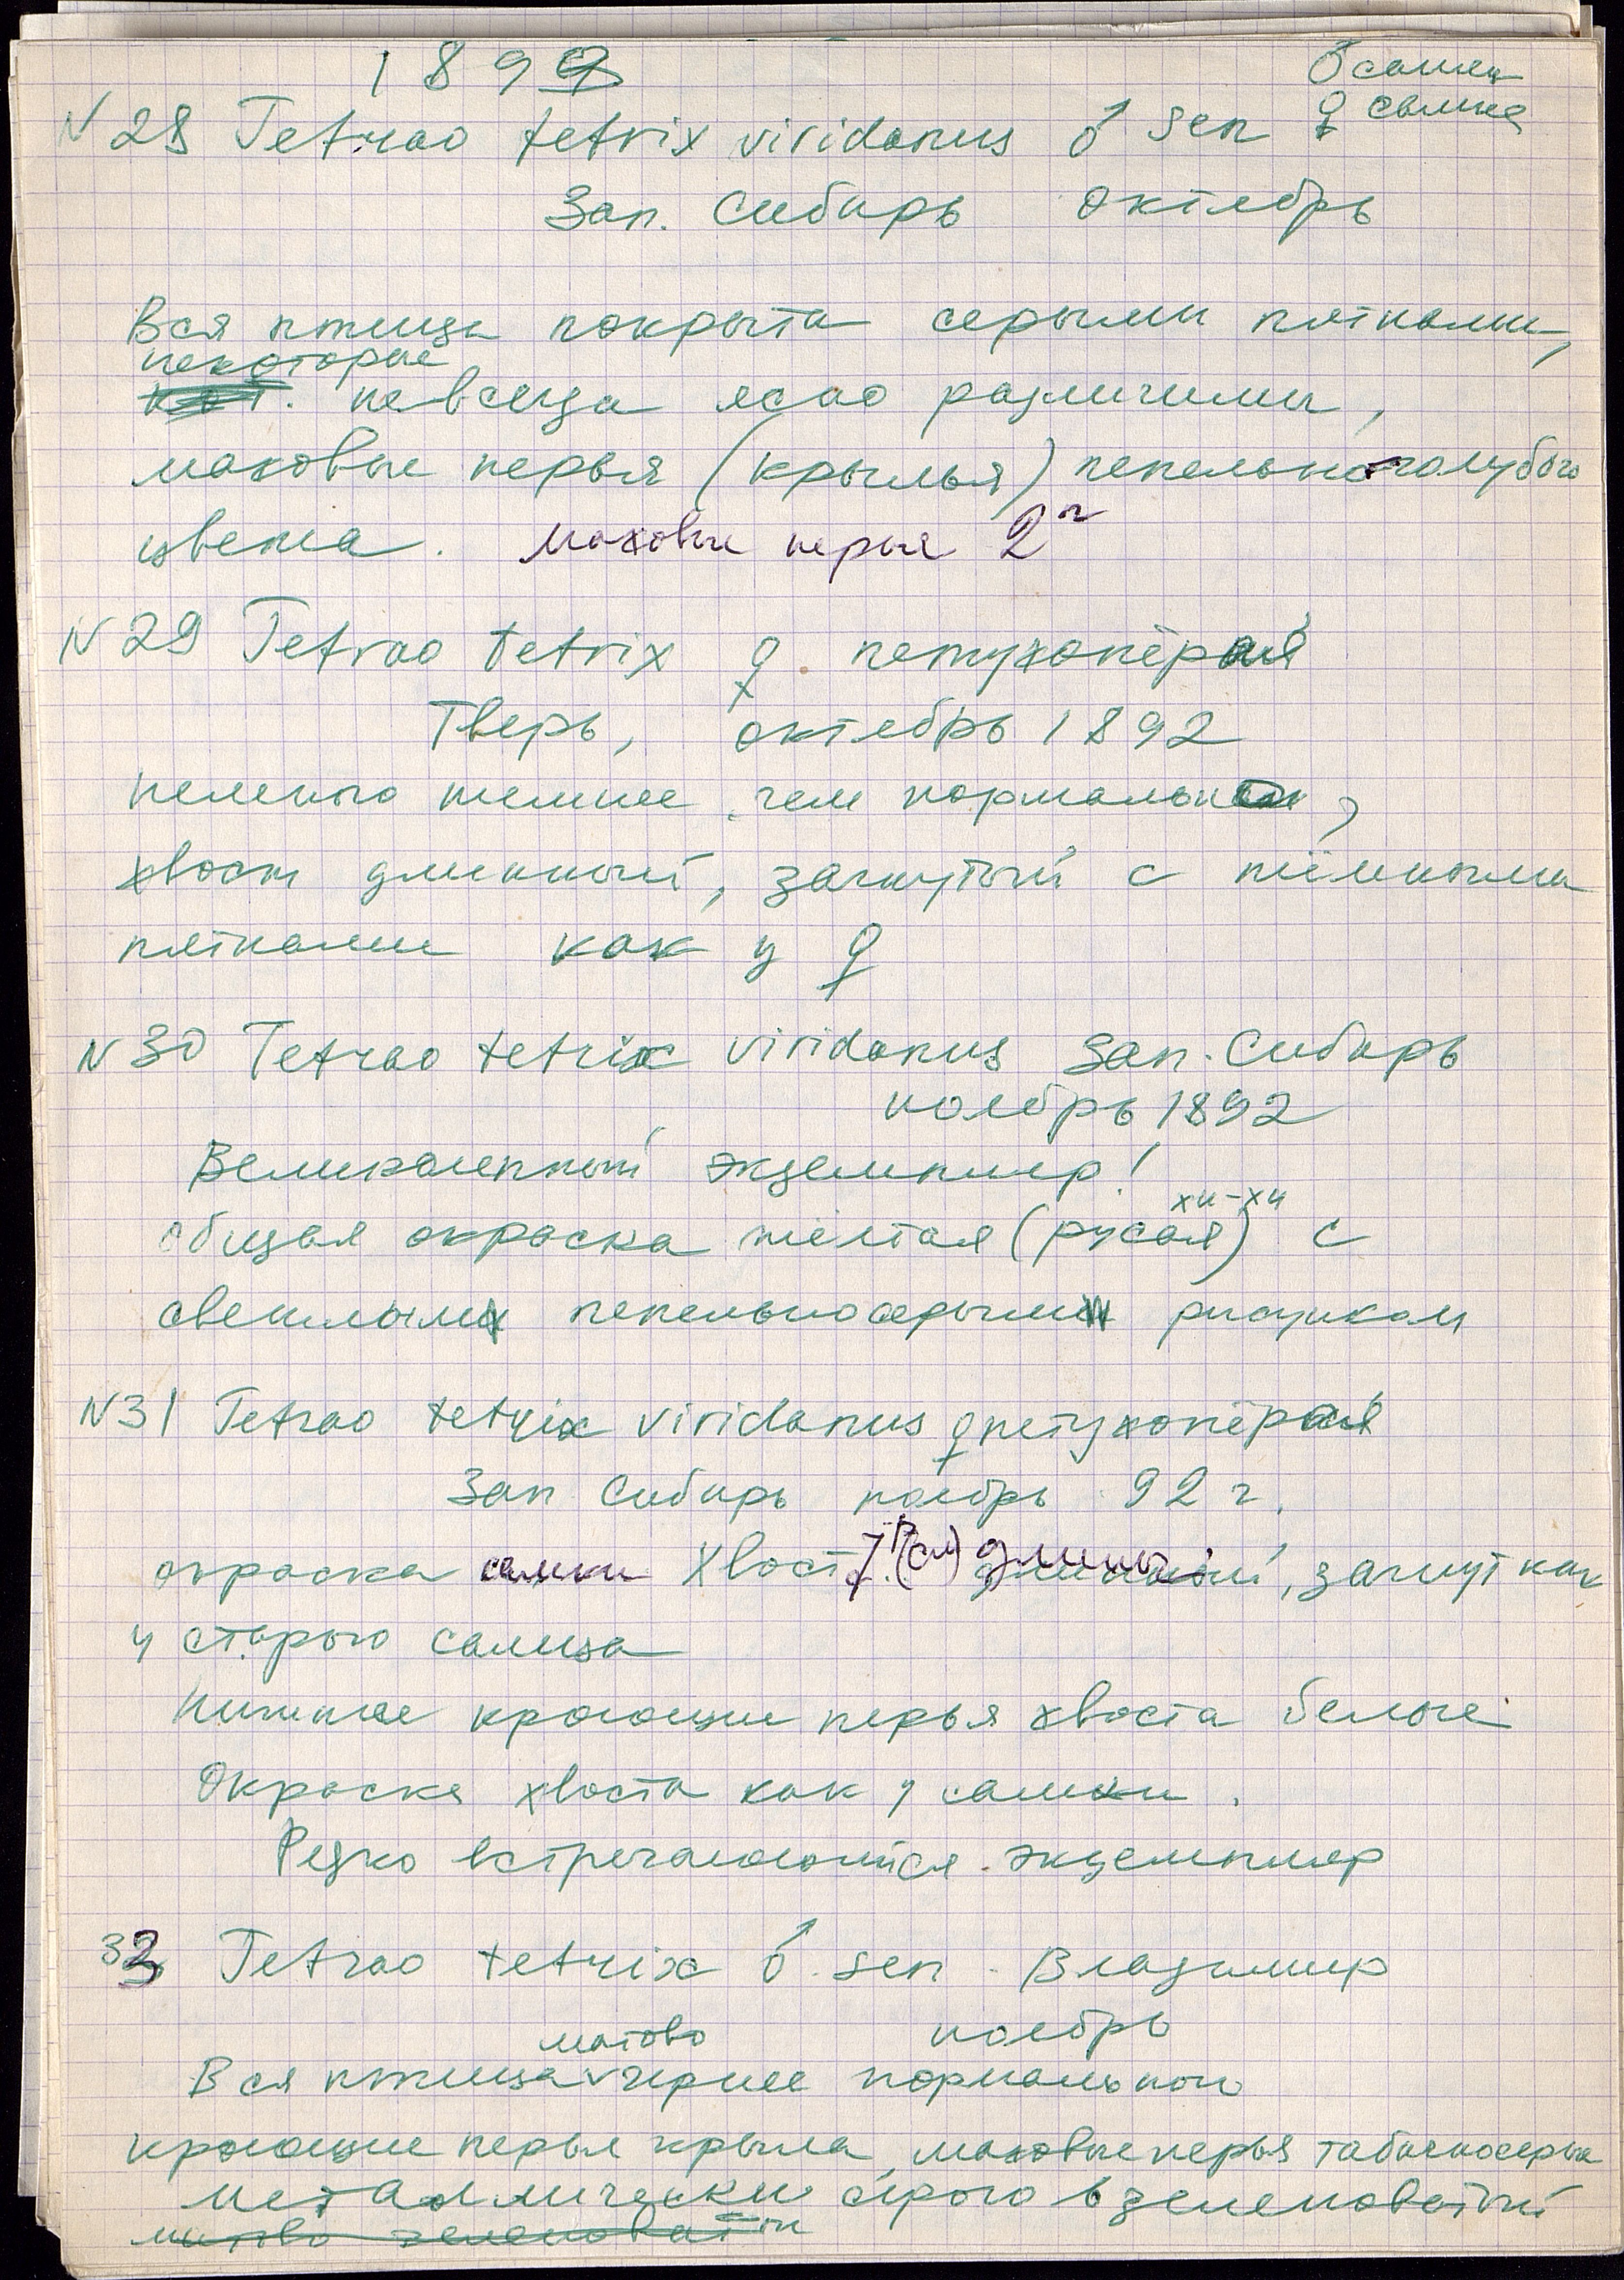 1899
♂ самец
♀ самка
N 28 Tetrao tetrix viridanus ♂ sen
Зап. Сибирь октябрь
Вся птица покрыта серыми пятнами,
некоторые
не всегда ясно различимы,
маховые перья (крылья) пепельно-голубого
цвета. Маховые перья 2
N 29 Tetrao tetrix ♀ петухопёрая
Тверь, октябрь 1892
немного темнее чем нормальная,
хвост длинный, загнутый с тёмными
пятнами как у ♀
N 30 Tetrao tetrix viridanus Зап. Сибирь
ноябрь 1892
Великолепный экземпляр!
общая окраска жёлтая (русая) с
светлым пепельносерым рисунком
N 31 Tetrao tetrix viridanus ♀ петухопёрая
Зап Сибирь ноябрь 92 г.
окраска самки Хвост (см) длинный, загнут как
у старого самца
Нижние кроющие перья хвоста белые
Окраска хвоста как у самки.
Редко встречающийся экземпляр
33 Tetrao tetrix ♂ sen. Владимир
ноябрь
матово
Вся птица чернее нормального
кроющие перья крыла, маховые перья табачносерые
металлически серого в зеленоватый
матово зеленоватый